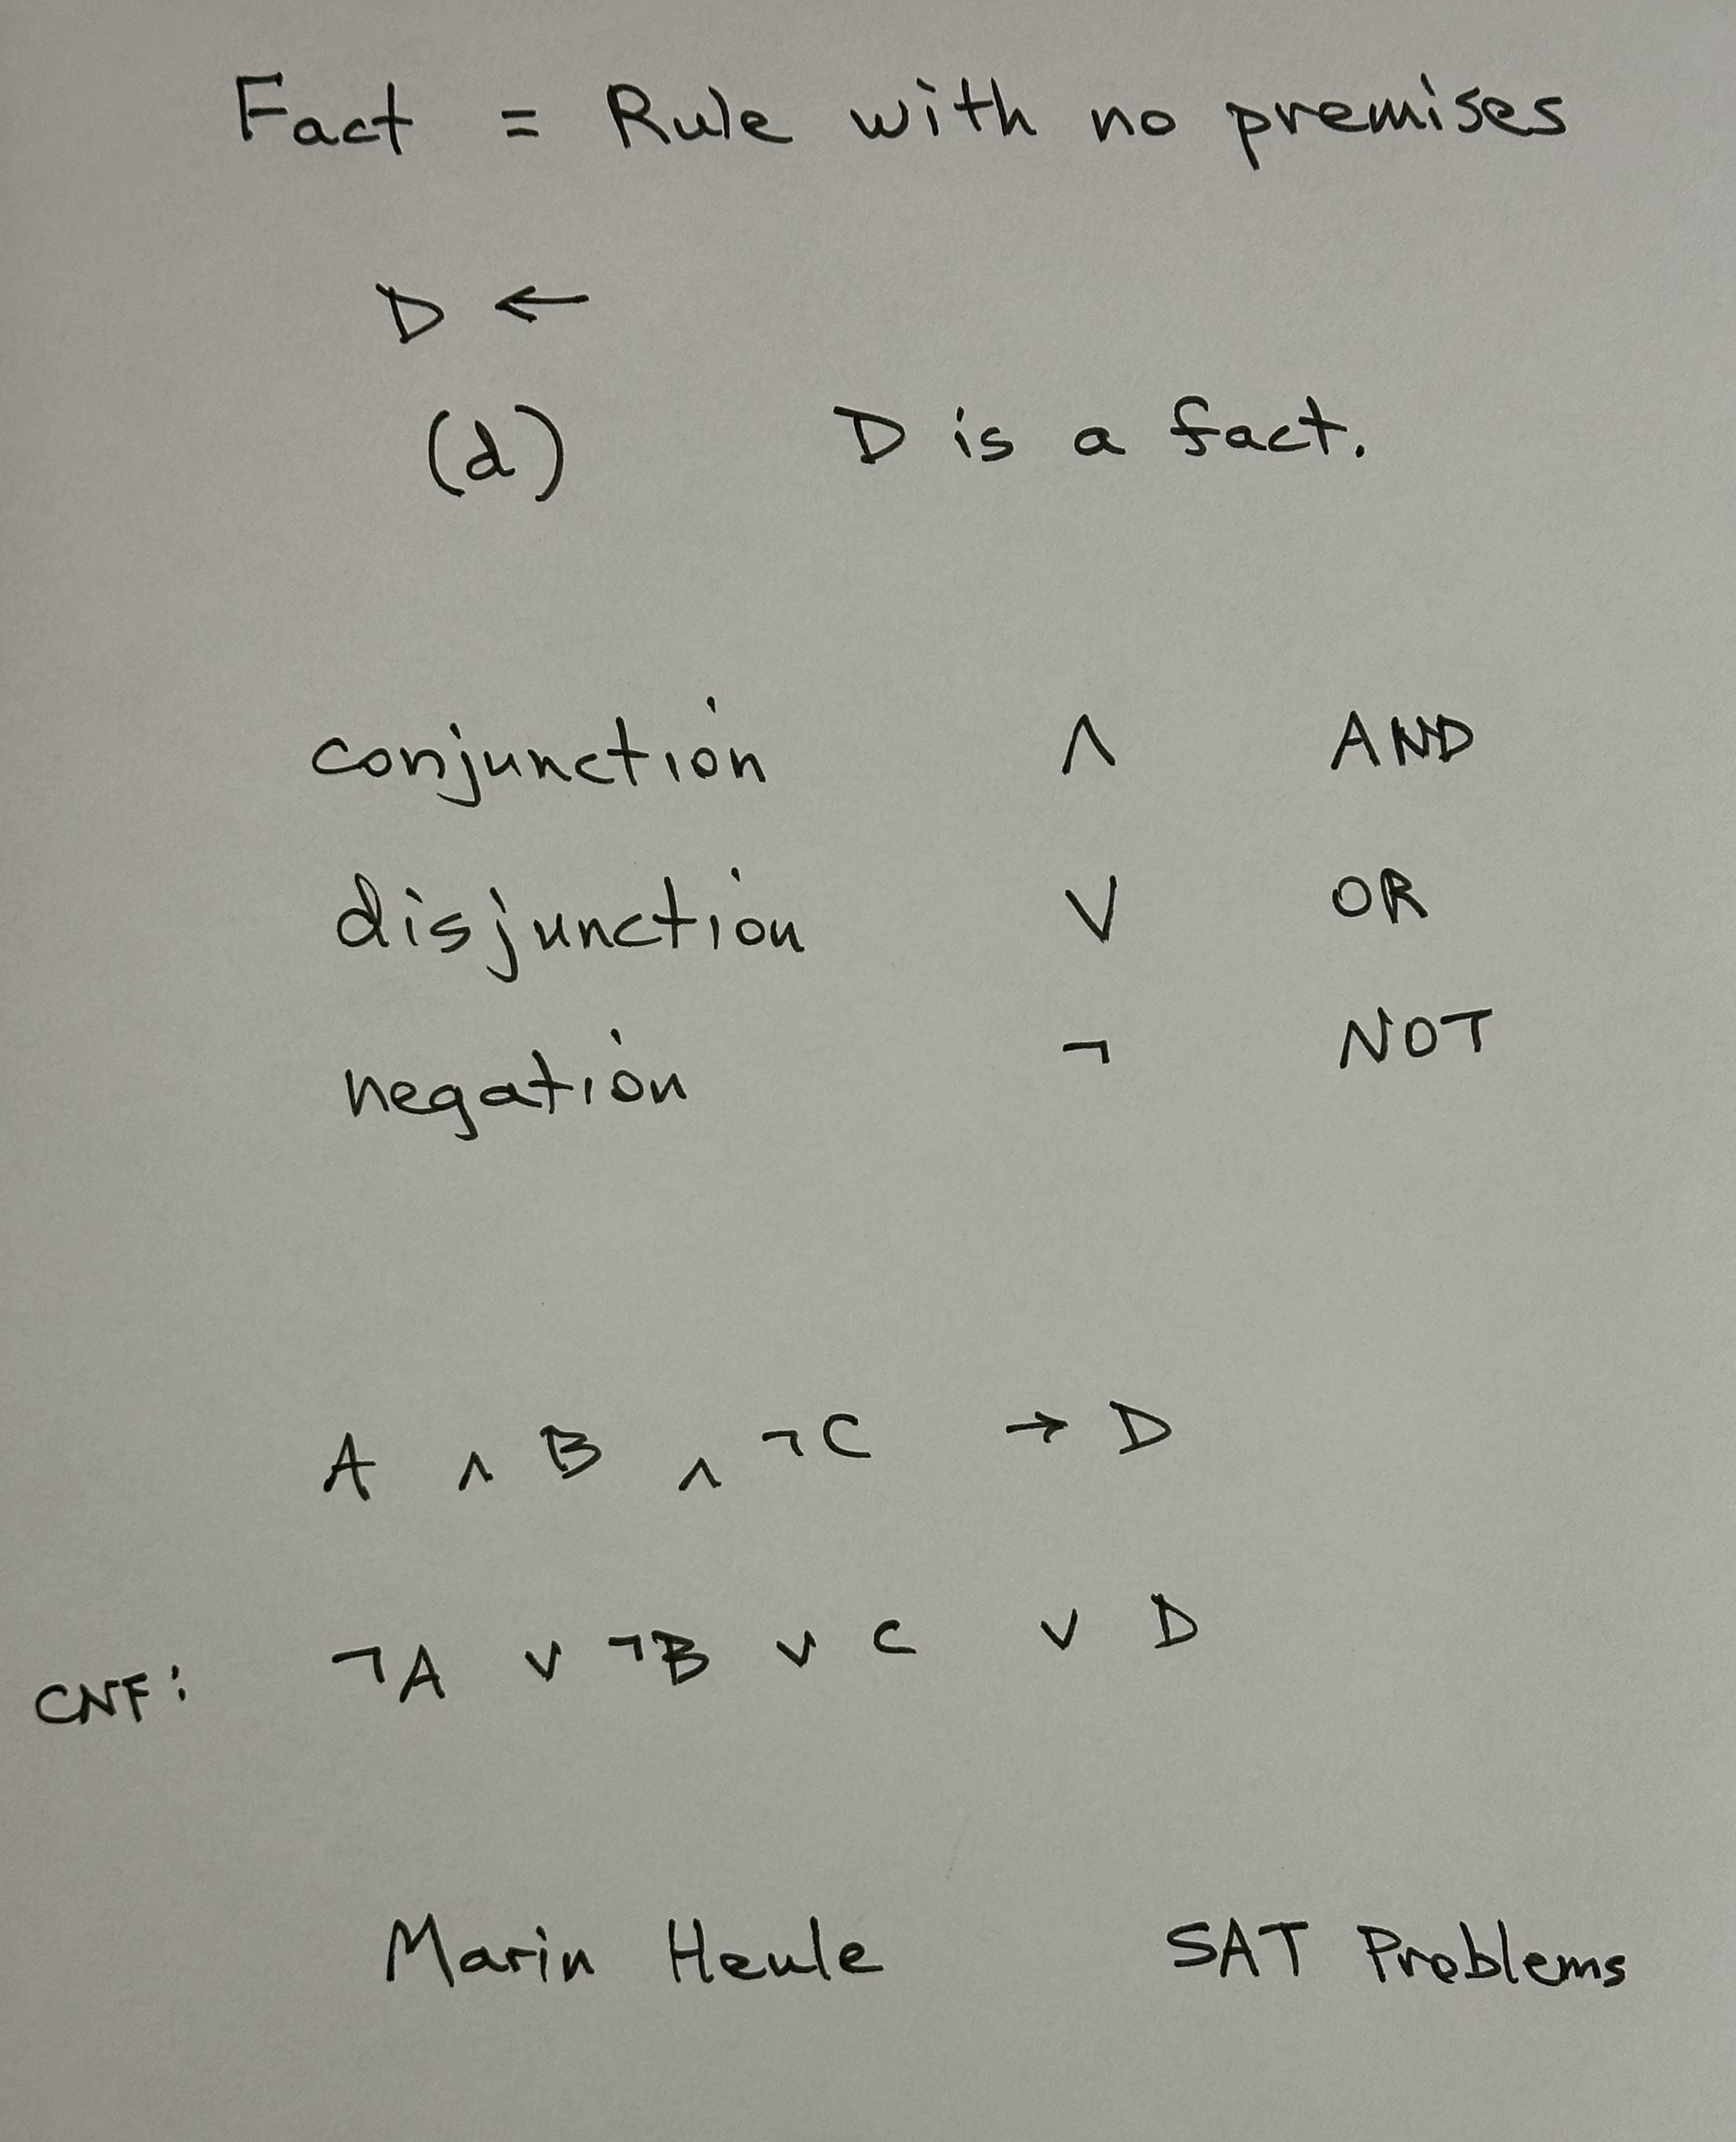 Fact = Rule with no premises
D ←
(d) D is a fact.
conjunction ∧ AND
disjunction ∨ OR
negation ¬ NOT
A ∧ B ∧ ¬C → D
CNF: ¬A ∨ ¬B ∨ C ∨ D
Marin Heule SAT Problems